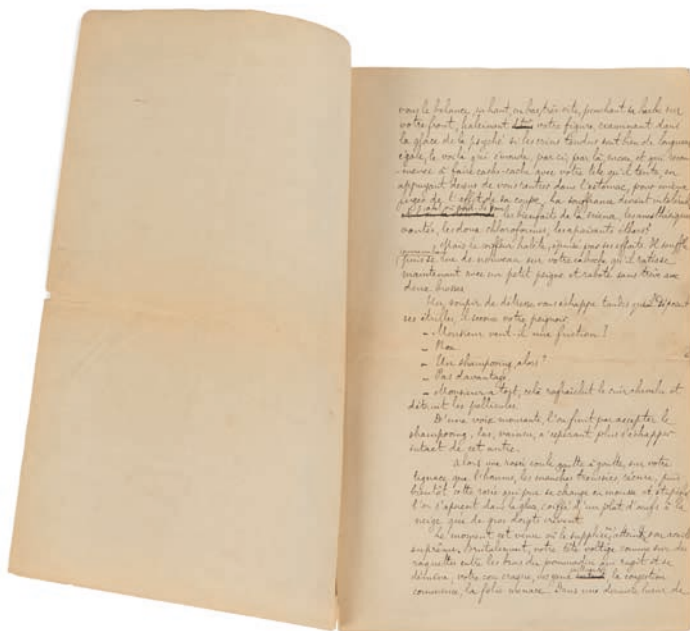 vous le balance, en haut, en bas, très vite, penchant sa barbe sur
votre front, haleinant votre figure, examinant dans
la glace de la psyché si les crins tendus sont bien de longueur
égale, le voilà qui émonde, par ci, par là, encore, et qui recom-
mence à faire cache-cache avec votre tête qu'il tente, en
appuyant dessus de vous rentrer dans l'estomac, pour mieux
juger de l'effet de sa coupe. La souffrance devient intolérable
les bienfaits de la science, les anesthésiques
vantés, les doux chloroformes, les apaisants éthers?
Mais le coiffeur halète, épuisé par ses efforts. Il souffle
puis se rue de nouveau sur votre caboche qu'il ratisse
maintenant avec un petit peigne et rabote sans trève avec
deux brosses
Un soupir de détresse vous échappe tandis que déposant
ses étrilles, il secoue votre peignoir.
- Monsieur veut-il une friction?
- Non
- Un shampoing, alors?
- Pas davantage.
- Monsieur a tort, cela raffraîchit le cuir chevelu et
détruit les pellicules.
D'une voix mourante, l'on finit par accepter le
shampoing, las, vaincu, n'espérant plus s'échapper
intact de cet antre.
Alors une rosée coule, goutte à goutte, sur votre
tignasse que l'homme, les manches troussées, récure, puis
bientôt cette rosée qui pue se change en mousse et, stupéfait
l'on s'aperçoit dans la glace, coiffé d'un plat d'oeufs à la
neige que de gros doigts crèvent.
Le moment est venu où le supplice, atteindra son acuité
suprême. Brutalement, votre tête voltige comme sur des
raquettes entre les bras du pommadin qui rugit et se
démène, votre cou craque, vos yeux saillent, la congestion
commence, la folie menace. Dans une dernière lueur de